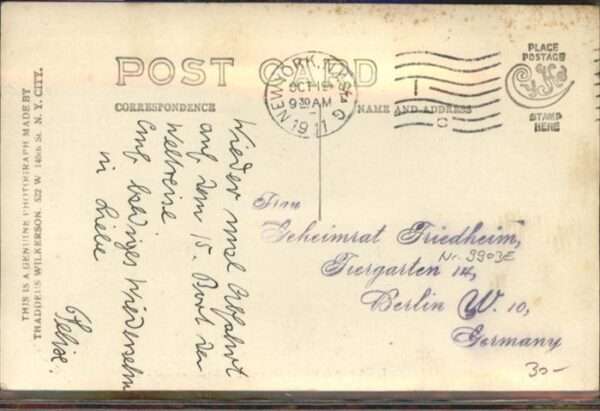 POST CARD
CORRESPONDENCE
NAME AND ADDRESS
PLACE
POSTAGE
STAMP
HERE
NEW YORK, N.Y.
OCT 19
9 30 AM
1911
G
THIS IS A GENUINE PHOTOGRAPH MADE BY
THADDEUS WILKERSON, 522 W 148th St. N. Y. CITY.
Wieder mal Abfahrt
auf dem 15. Boot der
Weltreise
Auf baldiges Wiedersehn
in Liebe
Felix.
Frau
Geheimrat Friedheim,
Tiergarten 14,
Berlin W. 10,
Germany
Nr. 9903E
30-